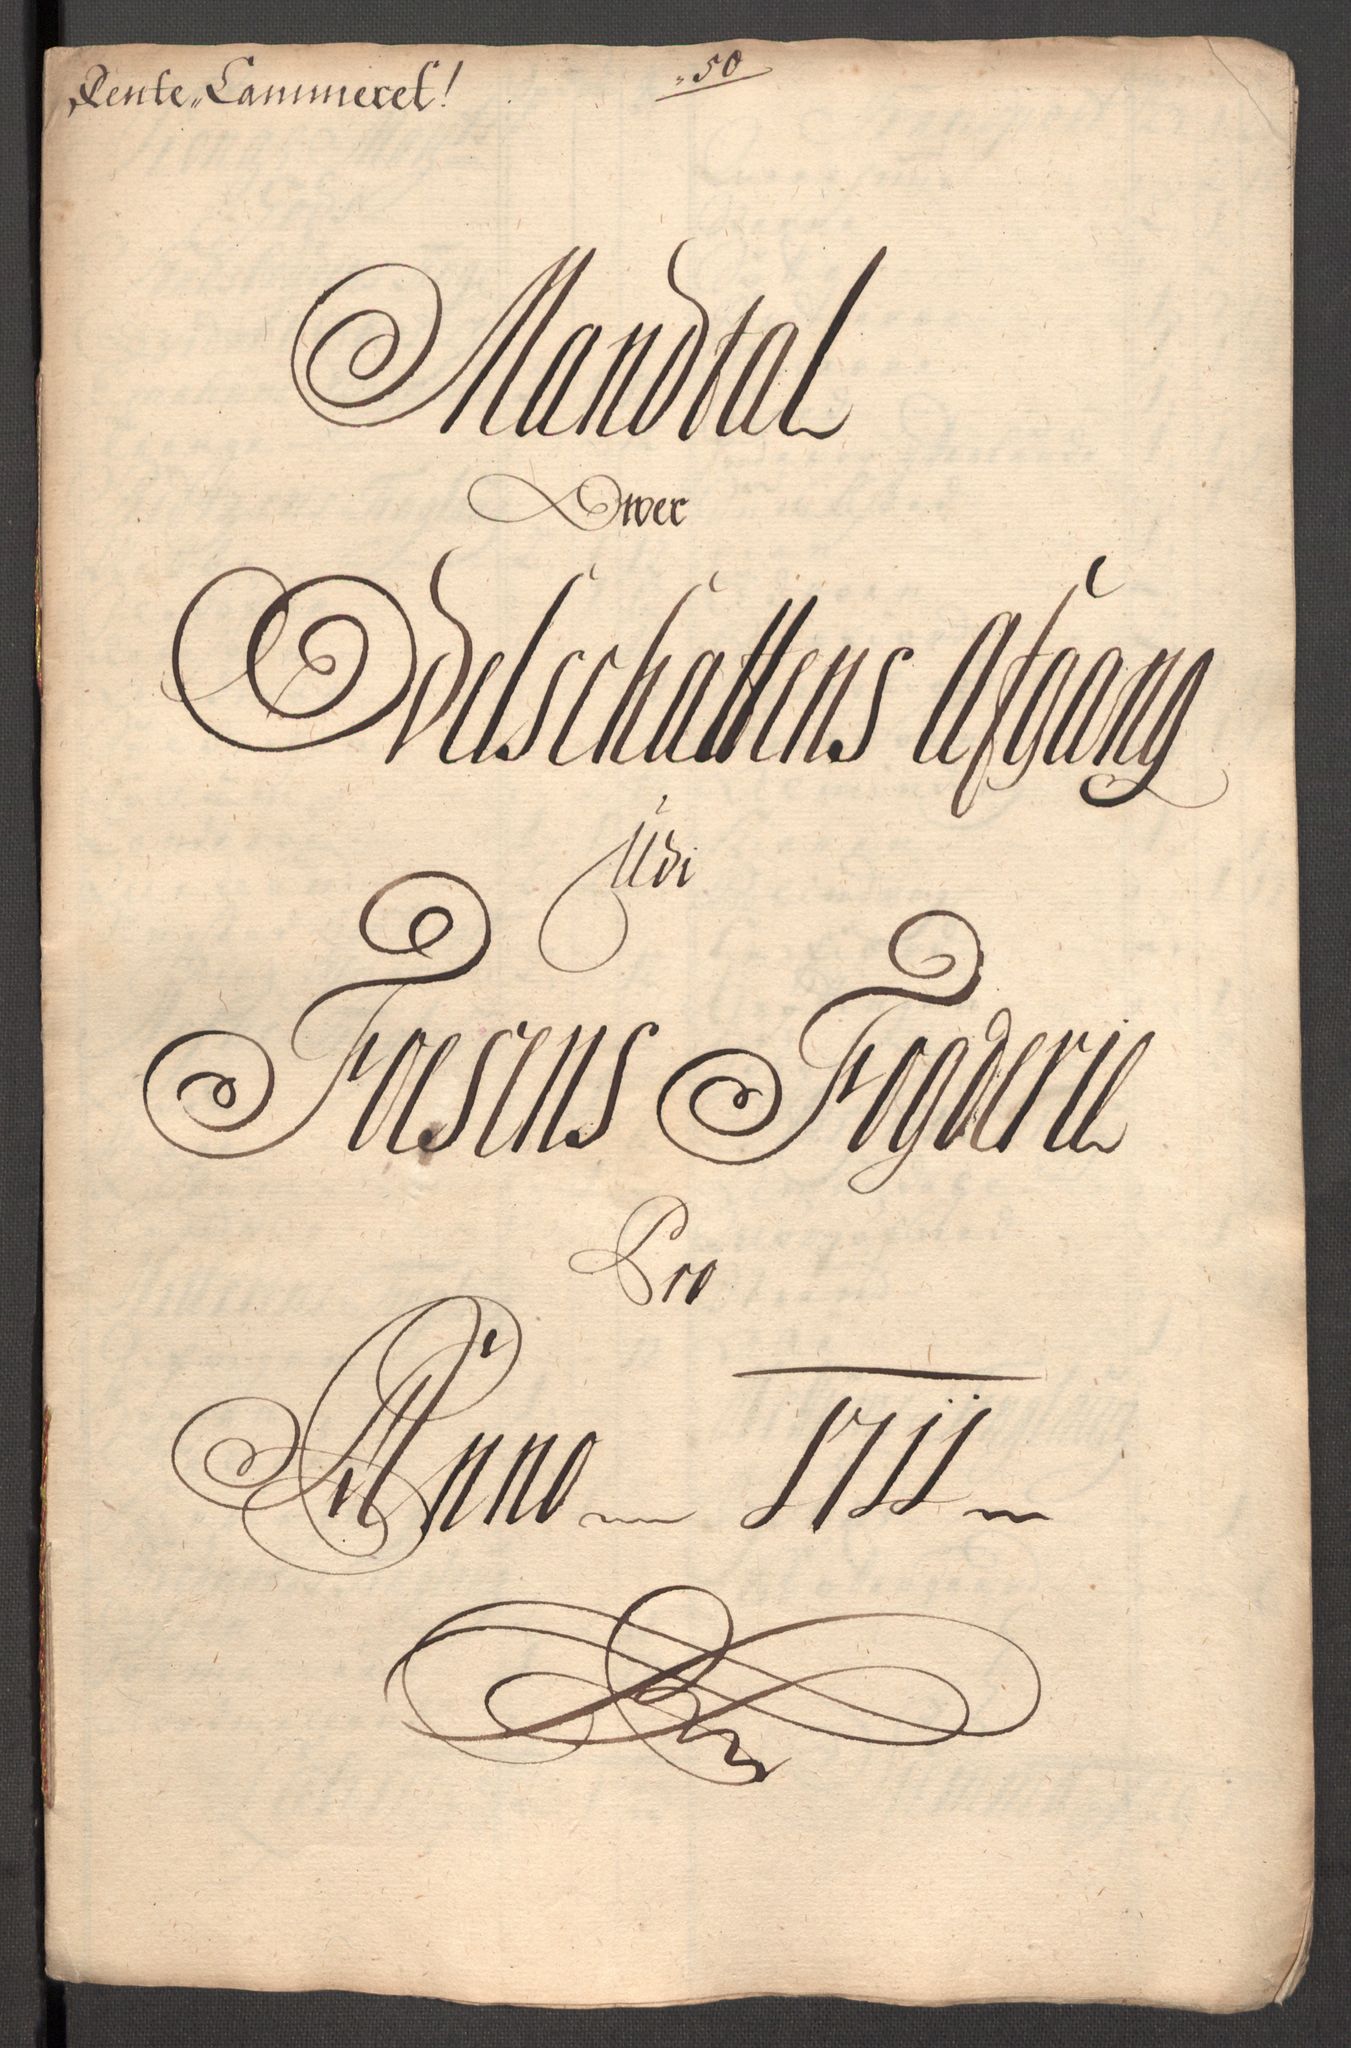 Rente-Cammeret!
50
Mandtal
Ower
Odelschattens Afgang
Udi
Foesens Fogderie
Pro
Anno 1711